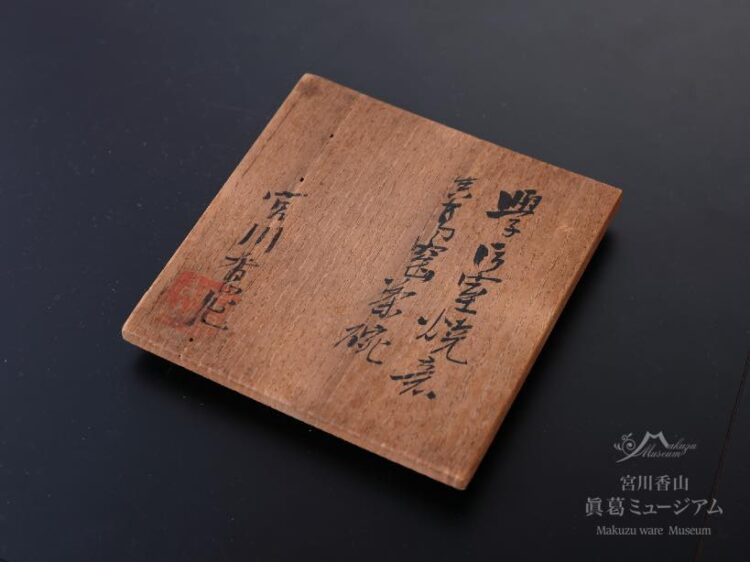 學室燒意
窯茶碗
宮川香山
Makuzu
Museum
宮川香山
眞葛ミュージアム
Makuzu ware Museum